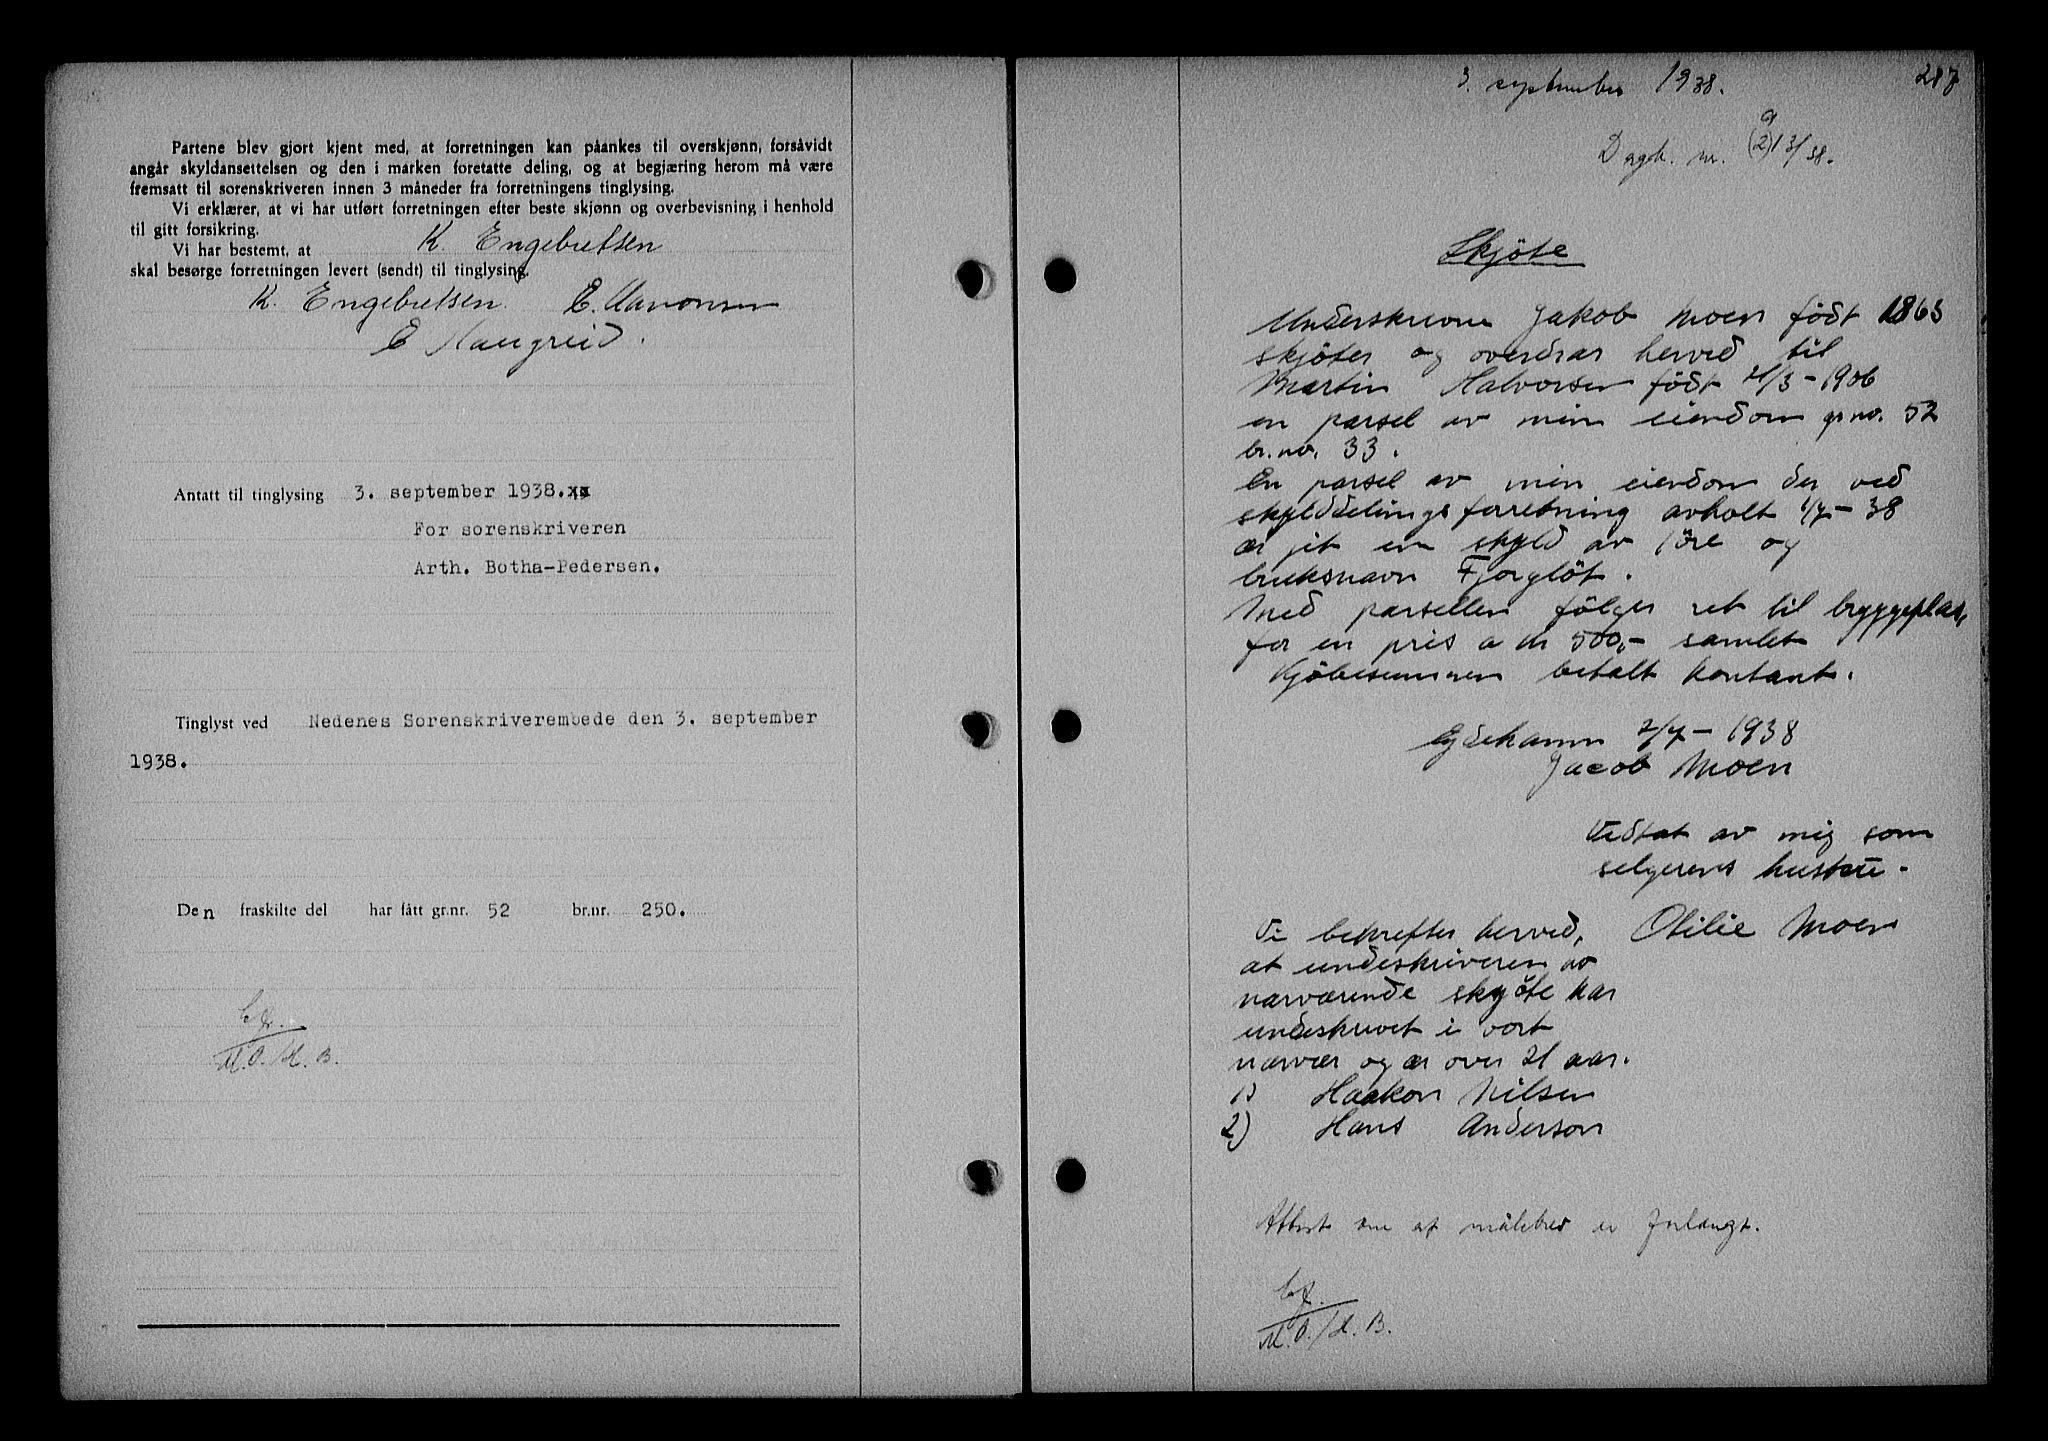 Partene blev gjort kjent med, at forretningen kan påankes til overskjønn, forsåvidt
angår skyldansettelsen og den i marken foretatte deling, og at begjæring herom må være
fremsatt til sorenskriveren innen 3 måneder fra forretningens tinglysing.
Vi erklærer, at vi har utført forretningen efter beste skjønn og overbevisning i henhold
til gitt forsikring.
Vi har bestemt, at K. Engebretsen
skal besørge forretningen levert (sendt) til tinglysing.
K. Engebretsen. E.
E
Antatt til tinglysing 3. september 1938.
For sorenskriveren
Arth. Botha-Pedersen.
Tinglyst ved Nedenes Sorenskriverembede den 3. september
1938.
Den fraskilte del har fått gr.nr. 52 br.nr. 250.
M.O./H.B.
3. september 1938. 287
Dagb. nr.
Skjöte
Underskrevne Jakob Moen födt 1863
skjöter og overdrar herved til
Martin Halvorsen födt 21/3-1906
en parsel av min eiendom gr.no. 52
br.no. 33.
En parsel av min eiendom der ved
skylddelingsforretning avholt 1/7-38
er jit en skyld av 1öre og
bruksnavn Fjorglöt.
Med parsellen fölger ret til bryggeplas,
for en pris a kr 500,- samlet
Kjöbesummen betalt kontant.
Eydehamn 2/7-1938
Jacob Moen
Vedtat av mig som
selgerens hustru.
Vi bekrefter herved, Otilie Moen
at undeskriveren av
nærværende skjöte har
undeskrevet i vort
nærvær og er over 21 aar.
1) Haakon Nilsen
2) Hans Anderson
Attest om at målebrev er forlangt.
M.O./H.B.